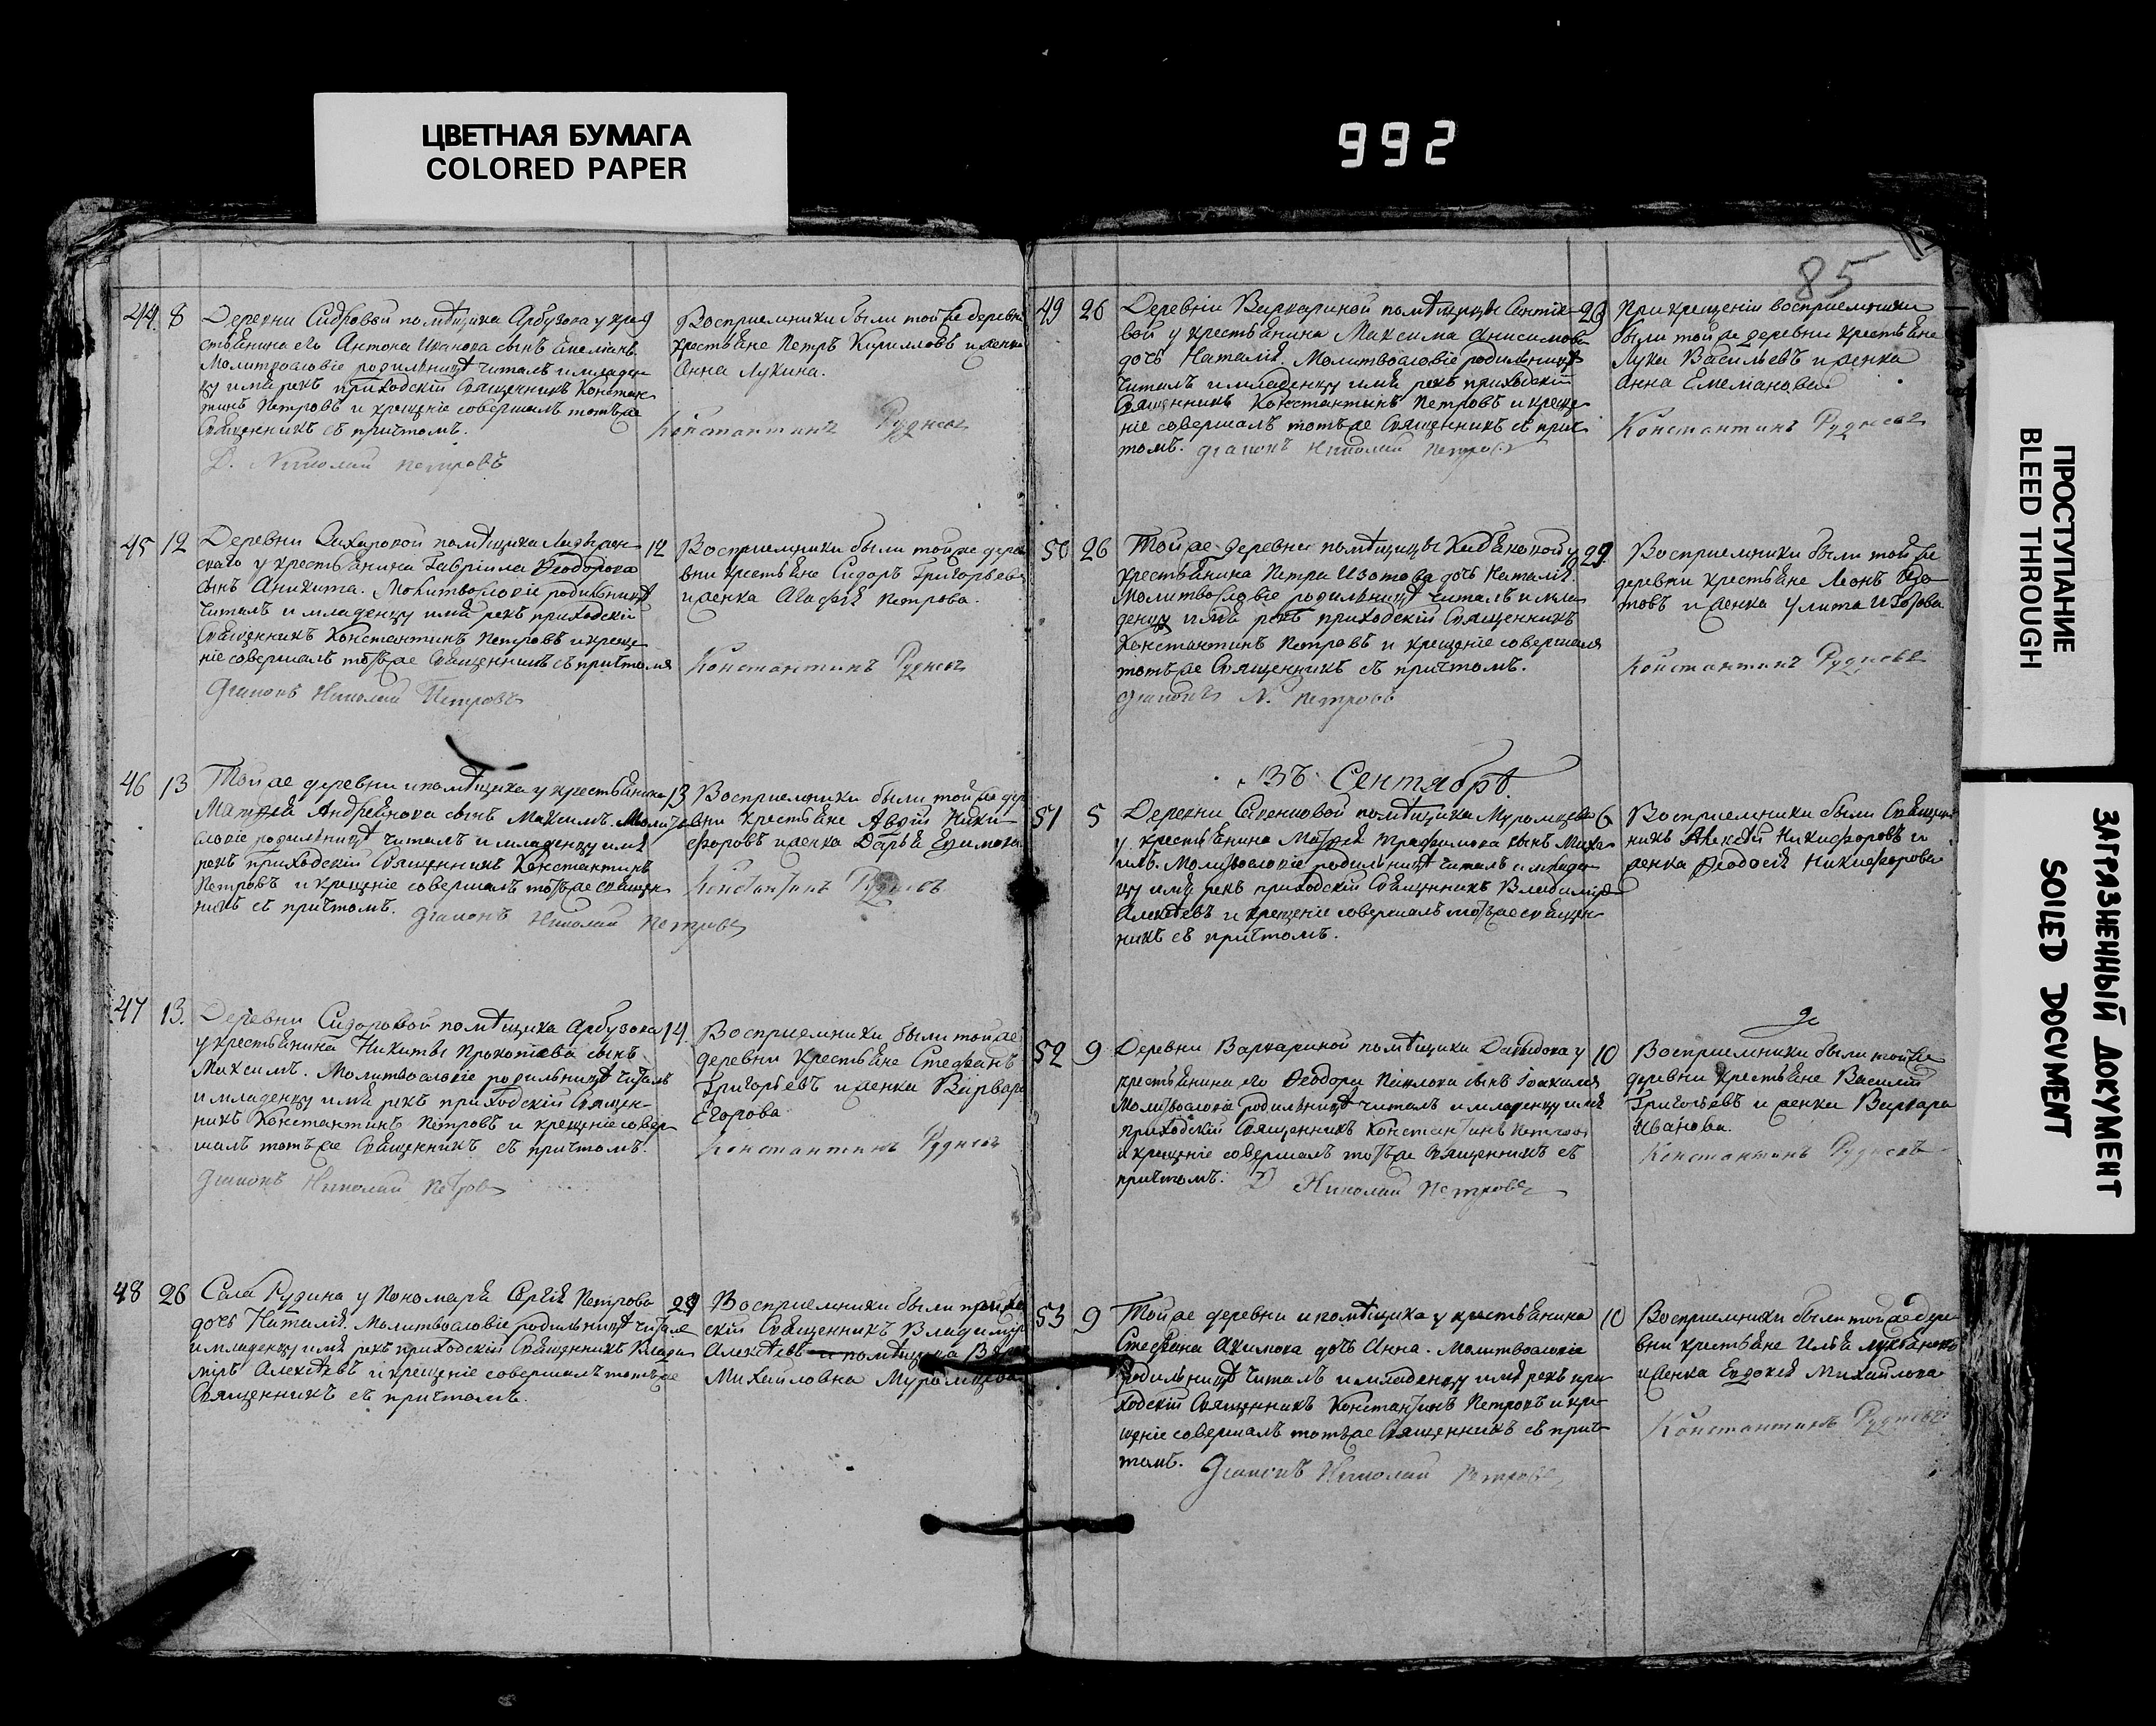 ЦВЕТНАЯ БУМАГА
COLORED PAPER
992
85
44. 8 Деревни Сидровой помѣщика Арбузова у кре 9
стьянина его Антона Иванова сынъ Емелианъ.
Молитвословіе родильницѣ читалъ и младен-
цу имя рекъ приходскій Священникъ Констан
тинъ Петровъ и крещеніе совершалъ тотъ же
Священникъ съ причтомъ.
Д. Николай Петровъ
Воспріемники были той же деревни
крестьяне Петръ Кирилловъ и женка
Анна Лукина.
Константинъ Рудневъ
45 12 Деревни Захаровой помѣщика 12
скаго у крестьянина Гавріила Ѳеодорова
сынъ Аникита. Молитвословіе родильницѣ
читалъ и младенцу имя рекъ приходскій
Священникъ Константинъ Петровъ и креще
ніе совершалъ тотъ же Священникъ съ причтомъ
Діаконъ Николай Петровъ
Воспріемники были той же дере
вни крестьяне Сидоръ Григорьевъ
и женка Агафья Петрова.
Константинъ Рудневъ
46 13 Той же деревни и помѣщика у крестьянина 13
Матѳея Андреянова сынъ Максимъ. Молитво
словіе родильницѣ читалъ и младенцу имя
рекъ приходскій Священникъ Константинъ
Петровъ и крещеніе совершалъ тотъ же священ
никъ съ причтомъ. Діаконъ Николай Петровъ
Воспріемники были той же дер
вни крестьяне Авдій Ники-
форовъ и женка Дарья Ефимова
Константинъ Рудневъ
47 13. Деревни Сидоровой помѣщика Арбузова 14.
у крестьянина Никиты Прокопіева сынъ
Максимъ. Молитвословіе родильницѣ читалъ
и младенцу имя рекъ приходскій Священ-
никъ Константинъ Петровъ и крещеніе совер-
шалъ тотъ же Священникъ съ причтомъ.
Діаконъ Николай Петровъ
Воспріемники были той же
деревни крестьяне Стефанъ
Григорьевъ и женка Варвара
Егорова
Константинъ Рудневъ
48 26 Села Рудина у Пономаря Сергія Петрова
дочь Наталія. Молитвословіе родильницѣ читалъ
и младенцу имя рекъ приходскій Священникъ Влади
міръ Алексѣевъ и крещеніе совершалъ тотъ же
Священникъ съ причтомъ.
Воспріемники были приход
скій Священникъ Владиміръ
Алексѣевъ и помѣщица
Михайловна Муромцева
49 26 Деревни Варвариной помѣщицы
вой у крестьянина Максима Анисимова
дочь Наталія. Молитвословіе родильницѣ
читалъ и младенцу имя рекъ приходскій
Священникъ Константинъ Петровъ и креще
ніе совершалъ тотъ же Священникъ съ прич-
томъ. Діаконъ Николай Петровъ
При крещеніи воспріемники
были той же деревни крестьяне
Лука Васильевъ и женка
Анна Емельанова
Константинъ Рудневъ
50 26 Той же деревни помѣщицы у 29.
крестьянина Петра Изотова дочь Наталія.
Молитвословіе родильницѣ читалъ и мла
денцу имя рекъ приходскій Священникъ
Константинъ Петровъ и крещеніе совершалъ
тотъ же Священникъ съ причтомъ.
Діаконъ Н. Петровъ
Воспріемники были той же
деревни крестьяне Леонъ Изо
товъ и женка Улита
Константинъ Рудневъ
Въ Сентябрѣ.
51 5 Деревни помѣщика Муромцева 6
у крестьянина Матѳея Трафимова сынъ Миха
илъ. Молитвословіе родильницѣ читалъ и младен
цу имя рекъ приходскій Священникъ Владиміръ
Алексѣевъ и крещеніе совершалъ тотъ же священ-
никъ съ причтомъ.
Воспріемники были Священ
никъ Алексѣй Никифоровъ и
женка Ѳеодосія Никифорова
52 9 Деревни Варвариной помѣщика Давыдова у 10
крестьянина его Ѳеодора Павлова сынъ Іоакимъ
Молитвословіе родильницѣ читалъ и младенцу имя
приходскій Священникъ Константинъ Петровъ
и крещеніе совершалъ тотъ же Священникъ съ
причтомъ. Д Николай Петровъ
Воспріемники были той же
деревни крестьяне Василій
Григорьевъ и женка Варвара
Иванова.
Константинъ Рудневъ
53 9 Той же деревни и помѣщика у крестьянина 10
Стефана Акимова дочь Анна. Молитвословіе
родильницѣ читалъ и младенцу имя рекъ при
ходскій Священникъ Константинъ Петровъ и кре-
щеніе совершалъ тотъ же Священникъ съ прич-
томъ. Діаконъ Николай Петровъ
Воспріемники были той же дере
вни крестьяне Илья
и женка Евдокія Михайлова
Константинъ Рудневъ
ПРОСТУПАНИЕ
BLEED THROUGH
ЗАГРЯЗНЕННЫЙ ДОКУМЕНТ
SOILED DOCUMENT